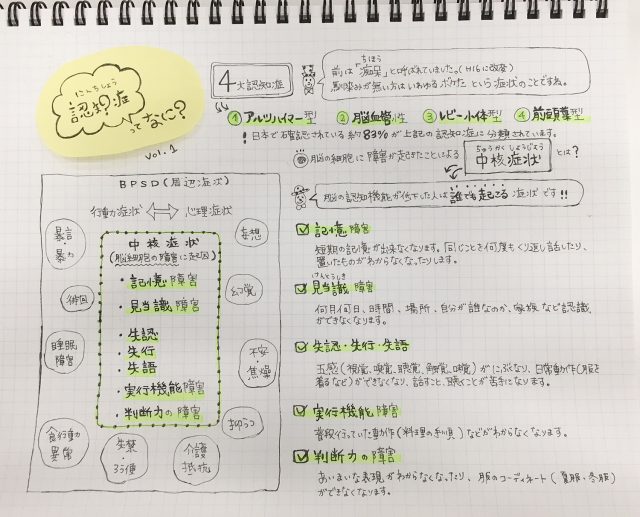 にんちしょう
認知症
って
なに?
vol.1
4大認知症
ちほう
前は「痴呆」と呼ばれていました。(H16に改容)
馬染みが無い方は いわゆる ボケた という症状のことですね。
①アルツハイマー型 ②脳血管性 ③レビー小体型 ④前頭葉型
!日本で確認されている 約83%が上記の認知症に分類されています。
脳の細胞に障害が起きたことによる
ちゅうかくしょうじょう
中核症状 とは?
脳の認知機能が低下した人は 誰でも起こる 症状です!!
BPSD(周辺症状)
行動症状 ⇔ 心理症状
暴言・
暴力
徘徊
睡眠
障害
食行動
異常
失禁
・
弄便
介護
抵抗
妄想
幻覚
不安
・
焦燥
抑うつ
中核症状
(脳細胞の障害に起因)
・記憶障害
・見当識障害
・失認
・失行
・失語
・実行機能障害
・判断力の障害
記憶障害
短期の記憶が出来なくなります。同じことを何度もくり返し話したり、
置いたものがわからなくなったりします。
けんとうしき
見当識障害
何月何日、時間、場所、自分が誰なのか、家族など認識
ができなくなります。
失認・失行・失語
五感(視覚、嗅覚、聴覚、触覚、味覚)がにぶくなり、日常動作(服を
着るなど)ができなくなり、話すこと、聴くことが苦手になります。
実行機能障害
普段行っていた動作(料理の手順)などがわからなくなります。
判断力の障害
あいまいな表現がわからなくなったり、服のコーディネート(夏服・冬服)
ができなくなります。